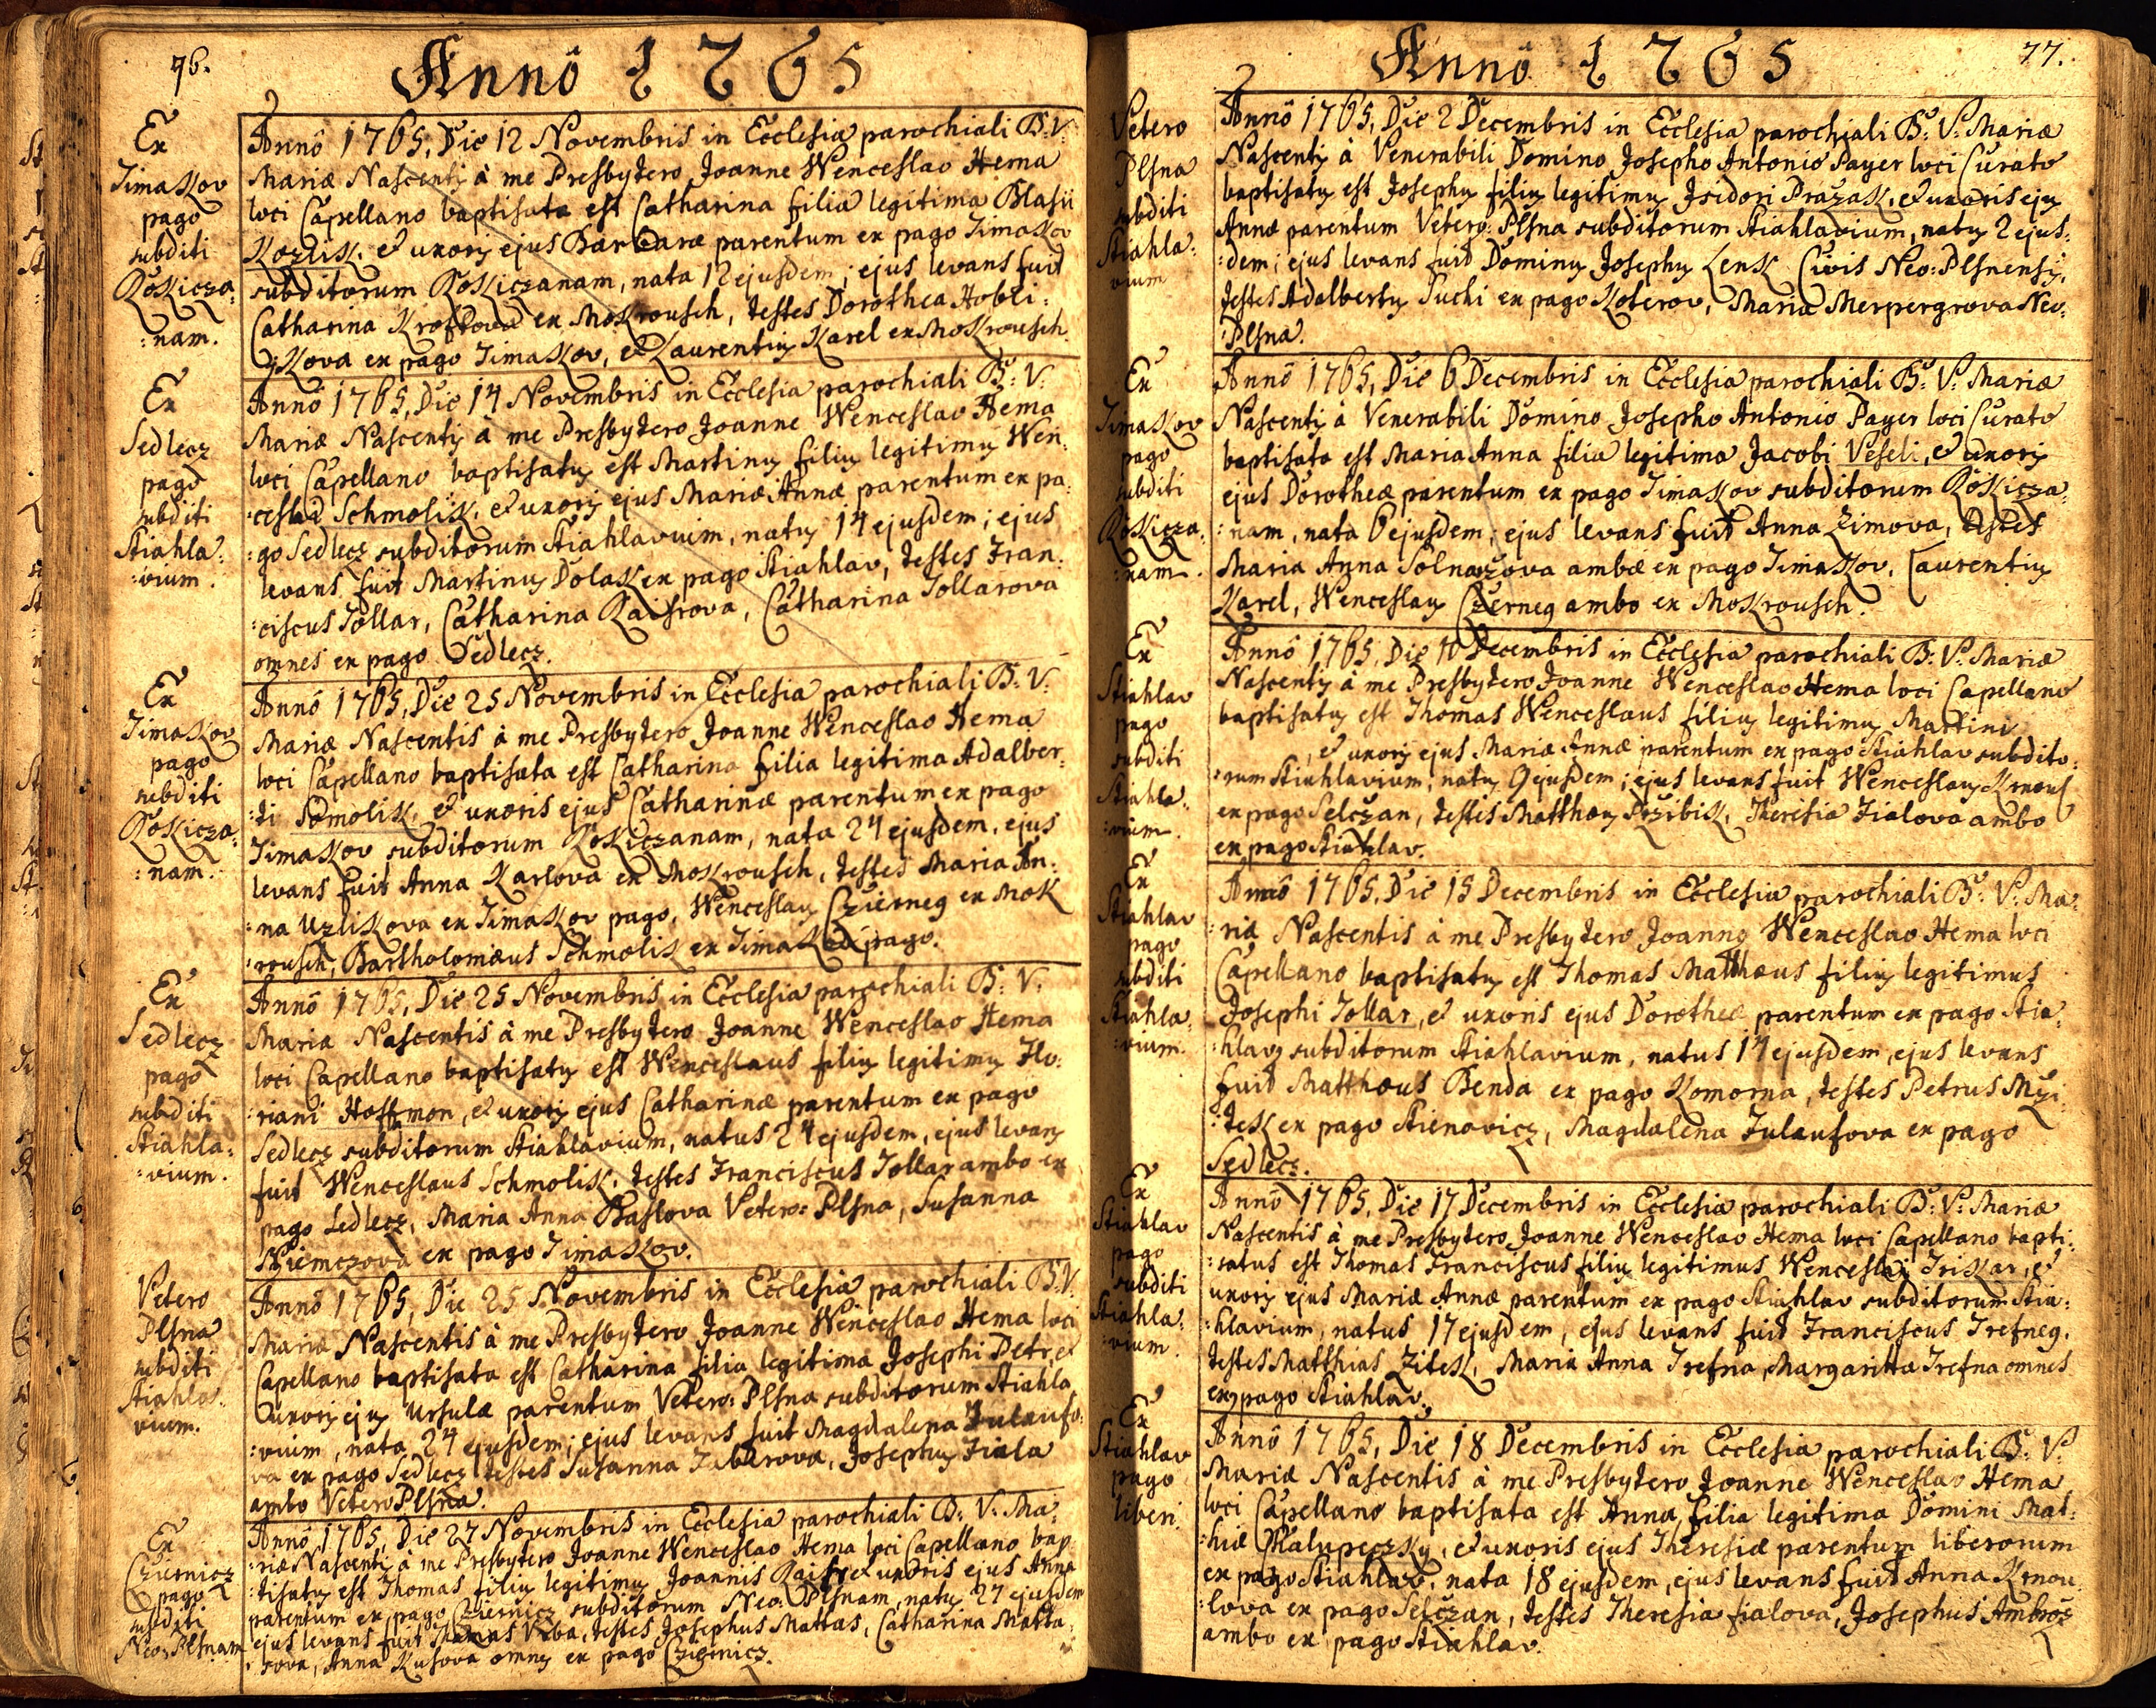 76.
Annô 1765
Ex
Timakov
pago
subditi
Rokicza:
:nam.
Annô 1765, Die 12 Novembris in Ecclesia parochiali B: V:
Mariæ Nascentis à me Presbytero Joanne Wenceslao Hema
loci Capellano baptisata est Catharina filia legitima Blasii
Kozlik, et uxoris ejus Barbaræ parentum ex pago Timakov
subditorum Rokiczanam, nata 12 ejusdem; ejus levans fuit
Catharina Kroftova ex Mokrousch, testes Dorothea Hobli:
:zkova ex pago Timakov, et Laurentius Karel ex Mokrousch.
Ex
Sedlecz
pago
subditi
Stiahla:
:vium.
Annô 1765, Die 14 Novembris in Ecclesia parochiali B: V:
Mariæ Nascentis à me Presbytero Joanne Wenceslao Hema
loci Capellano baptisatus est Martinus filius legitimus Wen:
:ceslai Schmolik, et uxoris ejus Mariæ Annæ parentum ex pa:
:go Sedlecz subditorum Stiahlavium, natus 14 ejusdem; ejus
levans fuit Martinus Dolak ex pago Stiahlav, testes Fran:
:ciscus Tollar, Catharina Raisrova, Catharina Tollarova
omnes ex pago Sedlecz.
Ex
Timakov
pago
subditi
Rokicza:
:nam.
Annô 1765, Die 25 Novembris in Ecclesia parochiali B: V:
Mariæ Nascentis à me Presbytero Joanne Wenceslao Hema
loci Capellano baptisata est Catharina filia legitima Adalber:
:ti Somolik, et uxoris ejus Catharinæ parentum ex pago
Timakov subditorum Rokiczanam, nata 24 ejusdem, ejus
levans fuit Anna Karlova ex Mokrousch, testes Maria An:
:na Uzlikova ex Timakov pago, Wenceslaus Czierneg ex Mok
:rousch, Bartholomæus Schmolik ex Timakov pago.
Ex
Sedlecz
pago
subditi
Stiahla:
:vium.
Annô 1765, Die 25 Novembris in Ecclesia parochiali B: V:
Mariæ Nascentis à me Presbytero Joanne Wenceslao Hema
loci Capellano baptisatus est Wenceslaus filius legitimus Flo:
:riani Hoffmon, et uxoris ejus Catharinæ parentum ex pago
Sedlecz subditorum Stiahlavium, natus 24 ejusdem, ejus levans
fuit Wenceslaus Schmolik, testes Franciscus Tollar ambo ex
pago Sedlecz, Maria Anna Baslova Vetero: Plsna, Susanna
Niemczova ex pago Timakov.
Vetero
Plsna
subditi
Stiahla:
vium.
Annô 1765, Die 25 Novembris in Ecclesia parochiali B: V:
Mariæ Nascentis à me Presbytero Joanne Wenceslao Hema loci
Capellano baptisata est Catharina filia legitima Josephi Petr, et
uxoris ejus Ursulæ parentum Vetero: Plsna subditorum Stiahla
:vium, nata 24 ejusdem; ejus levans fuit Magdalena Fulaufo:
va ex pago Sedlecz testes Susanna Zabbrova, Josephus Fiala
ambo Vetero Plsna.
Ex
Cziernicz
pago
subditi
Neo: Plsnam
Annô 1765, Die 27 Novembris in Ecclesia parochiali B: V: Ma:
:riæ Nascentis à me Presbytero Joanne Wenceslao Hema loci Capellano bap
:tisatus est Thomas filius legitimus Joannis Raisr et uxoris ejus Annæ
parentum ex pago Cziernicz subditorum Neo: Plsnam, natus 27 ejusdem
ejus levans fuit Thomas Urba, testes Josephus Mattas, Catharina Matta:
:sova, Anna Kusova omnes ex pago Cziernicz.
77.
Annô 1765
Vetero
Plsna
subditi
Stiahla:
vium
Annô 1765, Die 2 Decembris in Ecclesia parochiali B: V: Mariæ
Nascentis à Venerabili Domino Josepho Antonio Payer loci Curato
baptisatus est Josephus filius legitimus Isidori Prazak, et uxoris ejus
Annæ parentum Vetero: Plsna subditorum Stiahlavium, natus 2 ejus:
:dem; ejus levans fuit Dominus Josephus Lenk Civis Neo: Plsnensis,
testes Adalbertus Puchi ex pago Koterov, Maria Merpergrova Neo:
:Plsna.
Ex
Timakov
pago
subditi
Rokicza:
:nam.
Annô 1765, Die 6 Decembris in Ecclesia parochiali B: V: Mariæ
Nascentis à Venerabili Domino Josepho Antonio Payer loci Curato
baptisata est Maria Anna filia legitima Jacobi Veseli, et uxoris
ejus Dorotheæ parentum ex pago Timakov subditorum Rokicza:
:nam, nata 6 ejusdem; ejus levans fuit Anna Zimova, testes
Maria Anna Solnazova ambæ ex pago Timakov, Laurentius
Karel, Wenceslaus Czerneg ambo ex Mokrousch.
Ex
Stiahlav
pago
subditi
Stiahla:
:vium.
Annô 1765, Die 10 Decembris in Ecclesia parochiali B: V: Mariæ
Nascentis à me Presbytero Joanne Wenceslao Hema loci Capellano
baptisatus est Thomas Wenceslaus filius legitimus Martini
, et uxoris ejus Mariæ Annæ parentum ex pago Stiahlav subdito:
:rum Stiahlavium, natus 9 ejusdem; ejus levans fuit Wenceslaus Krnoul
ex pago Selczan, testes Matthæus Przibik, Theresia Fialova ambo
ex pago Stiahlav.
Ex
Stiahlav
pago
subditi
Stiahla:
:vium.
Annô 1765, Die 15 Decembris in Ecclesia parochiali B: V: Ma:
:riæ Nascentis à me Presbytero Joanne Wenceslao Hema loci
Capellano baptisatus est Thomas Matthæus filius legitimus
Josephi Tollar, et uxoris ejus Dorotheæ parentum ex pago Stia:
:hlav subditorum Stiahlavium, natus 14 ejusdem, ejus levans
fuit Matthæus Benda ex pago Komorna, testes Petrus Mzi:
:tesk ex pago Stienovicz, Magdalena Fulaufova ex pago
Sedlecz.
Ex
Stiahlav
pago
subditi
Stiahla:
:vium.
Annô 1765, Die 17 Decembris in Ecclesia parochiali B: V: Mariæ
Nascentis à me Presbytero Joanne Wenceslao Hema loci Capellano bapti:
:satus est Thomas Franciscus filius legitimus Wenceslai Triskar, et
uxoris ejus Mariæ Annæ parentum ex pago Stiahlav subditorum Stia:
:hlavium, natus 17 ejusdem, ejus levans fuit Franciscus Trefneg.
testes Matthias Zitek, Maria Anna Trefna, Margaritta Trefna omnes
ex pago Stiahlav.
Ex
Stiahlav
pago
liberi.
Annô 1765, Die 18 Decembris in Ecclesia parochiali B: V:
Mariæ Nascentis à me Presbytero Joanne Wenceslao Hema
loci Capellano baptisata est Anna filia legitima Domini Mat:
:hiæ Chalupeczky, et uxoris ejus Theresiæ parentum liberorum
ex pago Stiahlav, nata 18 ejusdem, ejus levans fuit Anna Krnou
:lova ex pago Selczan, testes Theresia fialova, Josephus Ambroz
ambo ex pago Stiahlav.